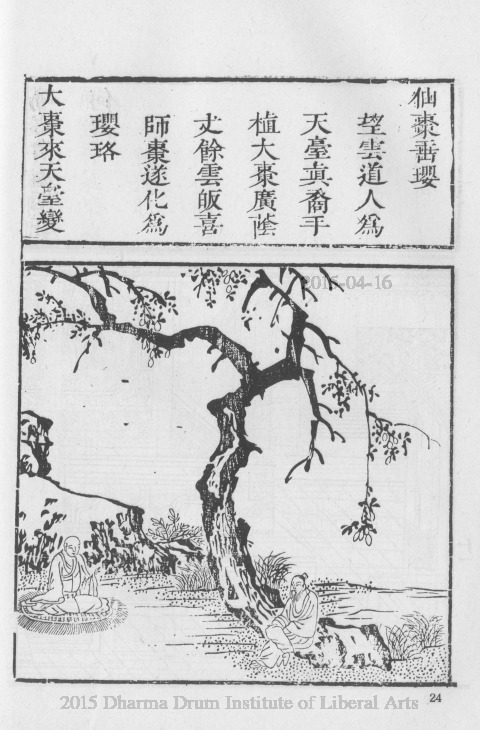 仙棗垂瓔
望雲道人爲
天臺眞裔手
植大棗廣蔭
丈餘雲皈喜
師棗遂化爲
瓔珞
大棗來天臺變
2015-04-16
2015 Dharma Drum Institute of Liberal Arts
24